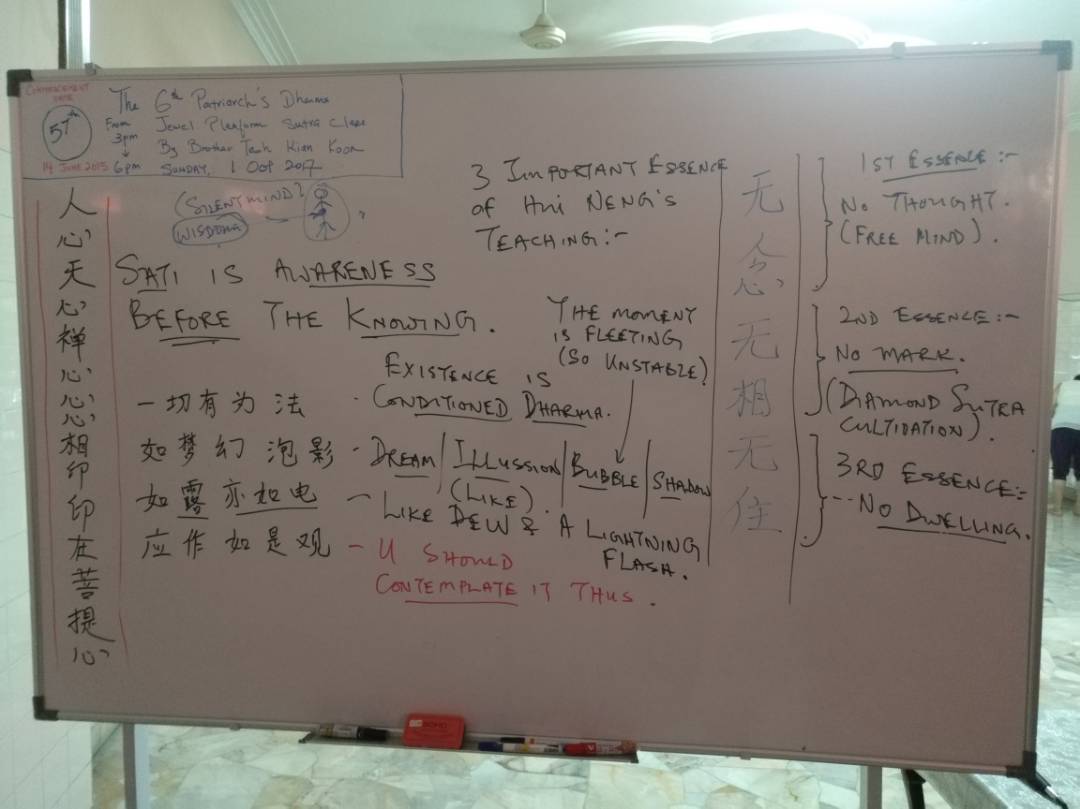 COMMENCEMENT
DATE
57th
14 JUNE 2015
The 6th Patriarch's Dharma
Jewel Platform Sutra Class
By Brother Teoh Kian Koon
From
3pm
6pm
SUNDAY, 1 Oct 2017
人心天心禅心心心相印印在菩提心
(SILENT MIND)
WISDOM
SATI IS AWARENESS
BEFORE THE KNOWING.
THE MOMENT
IS FLEETING
(SO UNSTABLE)
EXISTENCE IS
一切有为法 - CONDITIONED DHARMA.
如梦幻泡影 - DREAM / ILLUSSION / BUBBLE / SHADOW
(LIKE).
如露亦如电 - LIKE DEW & A LIGHTNING
FLASH.
应作如是观 - U SHOULD
CONTEMPLATE IT THUS.
3 IMPORTANT ESSENCE
OF HUI NENG'S
TEACHING:-
无念无相无住
1ST ESSENCE:-
NO THOUGHT.
(FREE MIND).
2ND ESSENCE:-
NO MARK.
(DIAMOND SUTRA
CULTIVATION).
3RD ESSENCE:-
NO DWELLING.